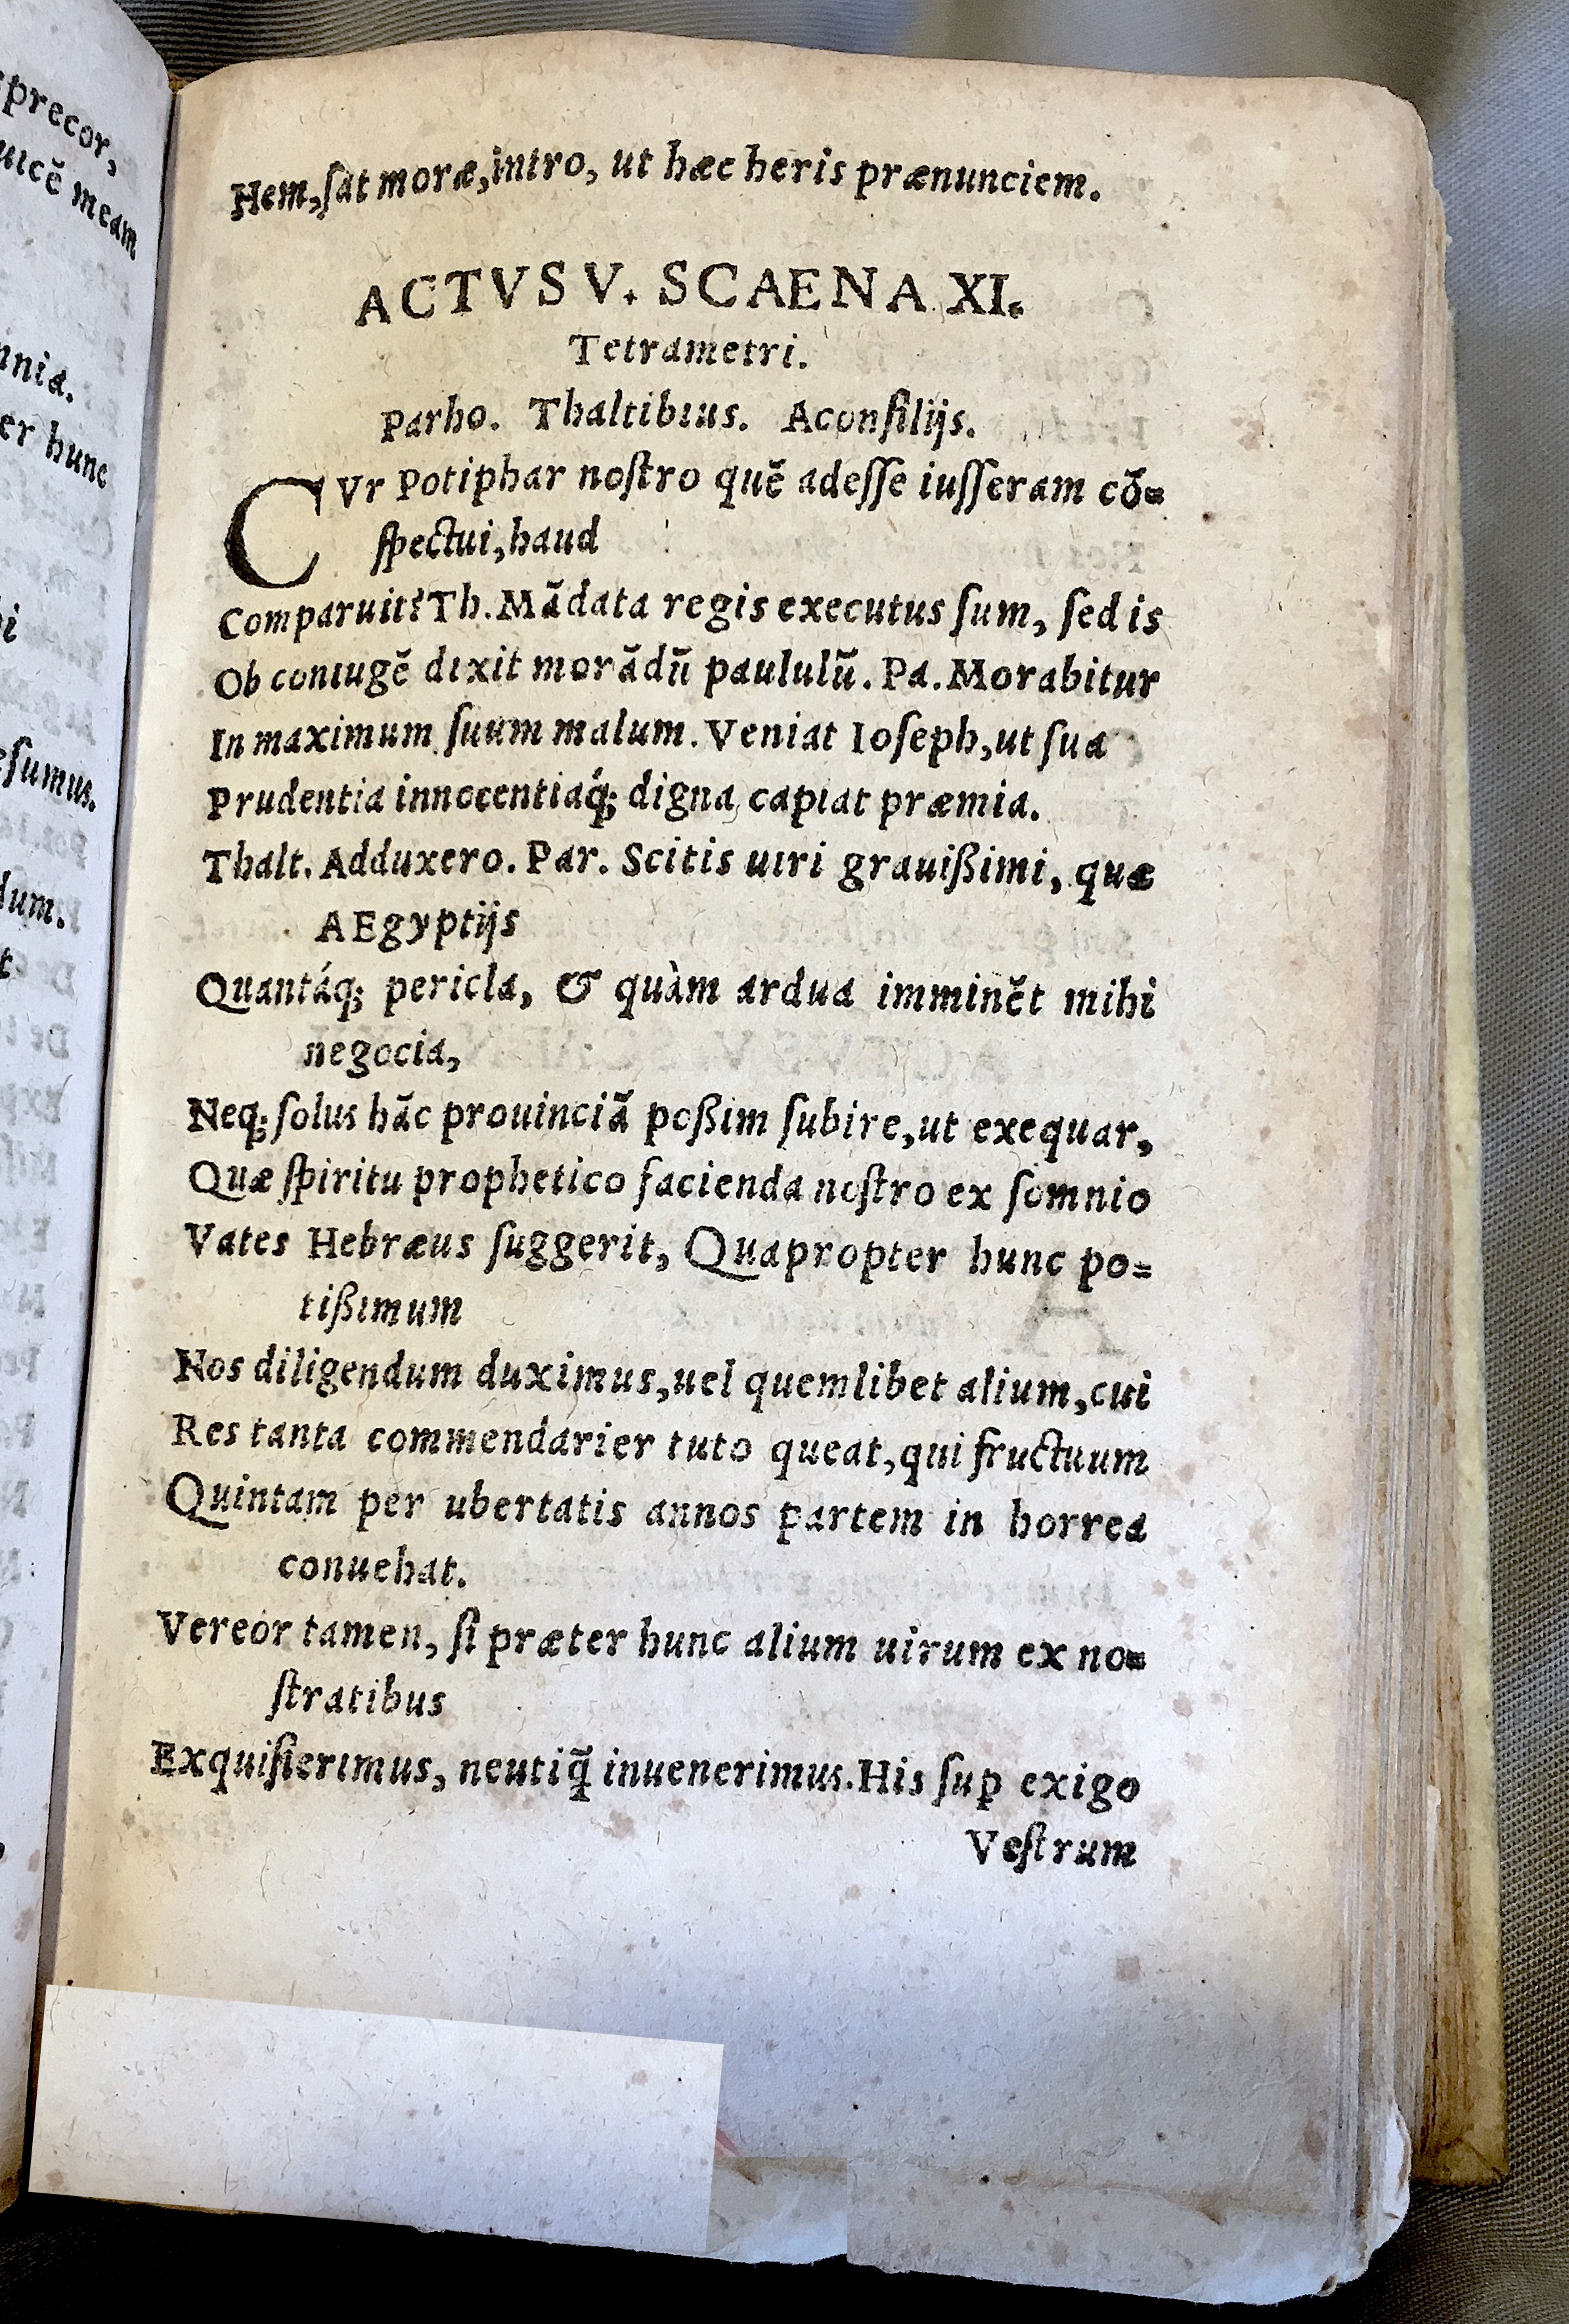 precor,
uicē meam
nnia.
er hunc
esumus.
dum.
Hem, sat moræ, intro, ut hæc heris prænunciem.
ACTVS V. SCAENA XI.
Tetrametri.
Parho. Thaltibius. Aconsilijs.
CVr Potiphar nostro quē adesse iusseram cō=
spectui, haud
Comparuit? Th. Mādata regis executus sum, sed is
Ob coniugē dixit morādū paululū. Pa. Morabitur
In maximum suum malum. Veniat Ioseph, ut sua
Prudentia innocentiáq; digna capiat præmia.
Thalt. Adduxero. Par. Scitis uiri grauißimi, quæ
AEgyptijs
Quantáq; pericla, & quàm ardua imminēt mihi
negocia,
Neq; solus hāc prouinciā poßim subire, ut exequar,
Quæ spiritu prophetico facienda nostro ex somnio
Vates Hebræus suggerit, Quapropter hunc po=
tißimum
Nos diligendum duximus, uel quemlibet alium, cui
Res tanta commendarier tuto queat, qui fructuum
Quintam per ubertatis annos partem in horrea
conuehat.
Vereor tamen, si præter hunc alium uirum ex no=
stratibus
Exquisierimus, neutiq̃ inuenerimus. His sup exigo
Vestrum